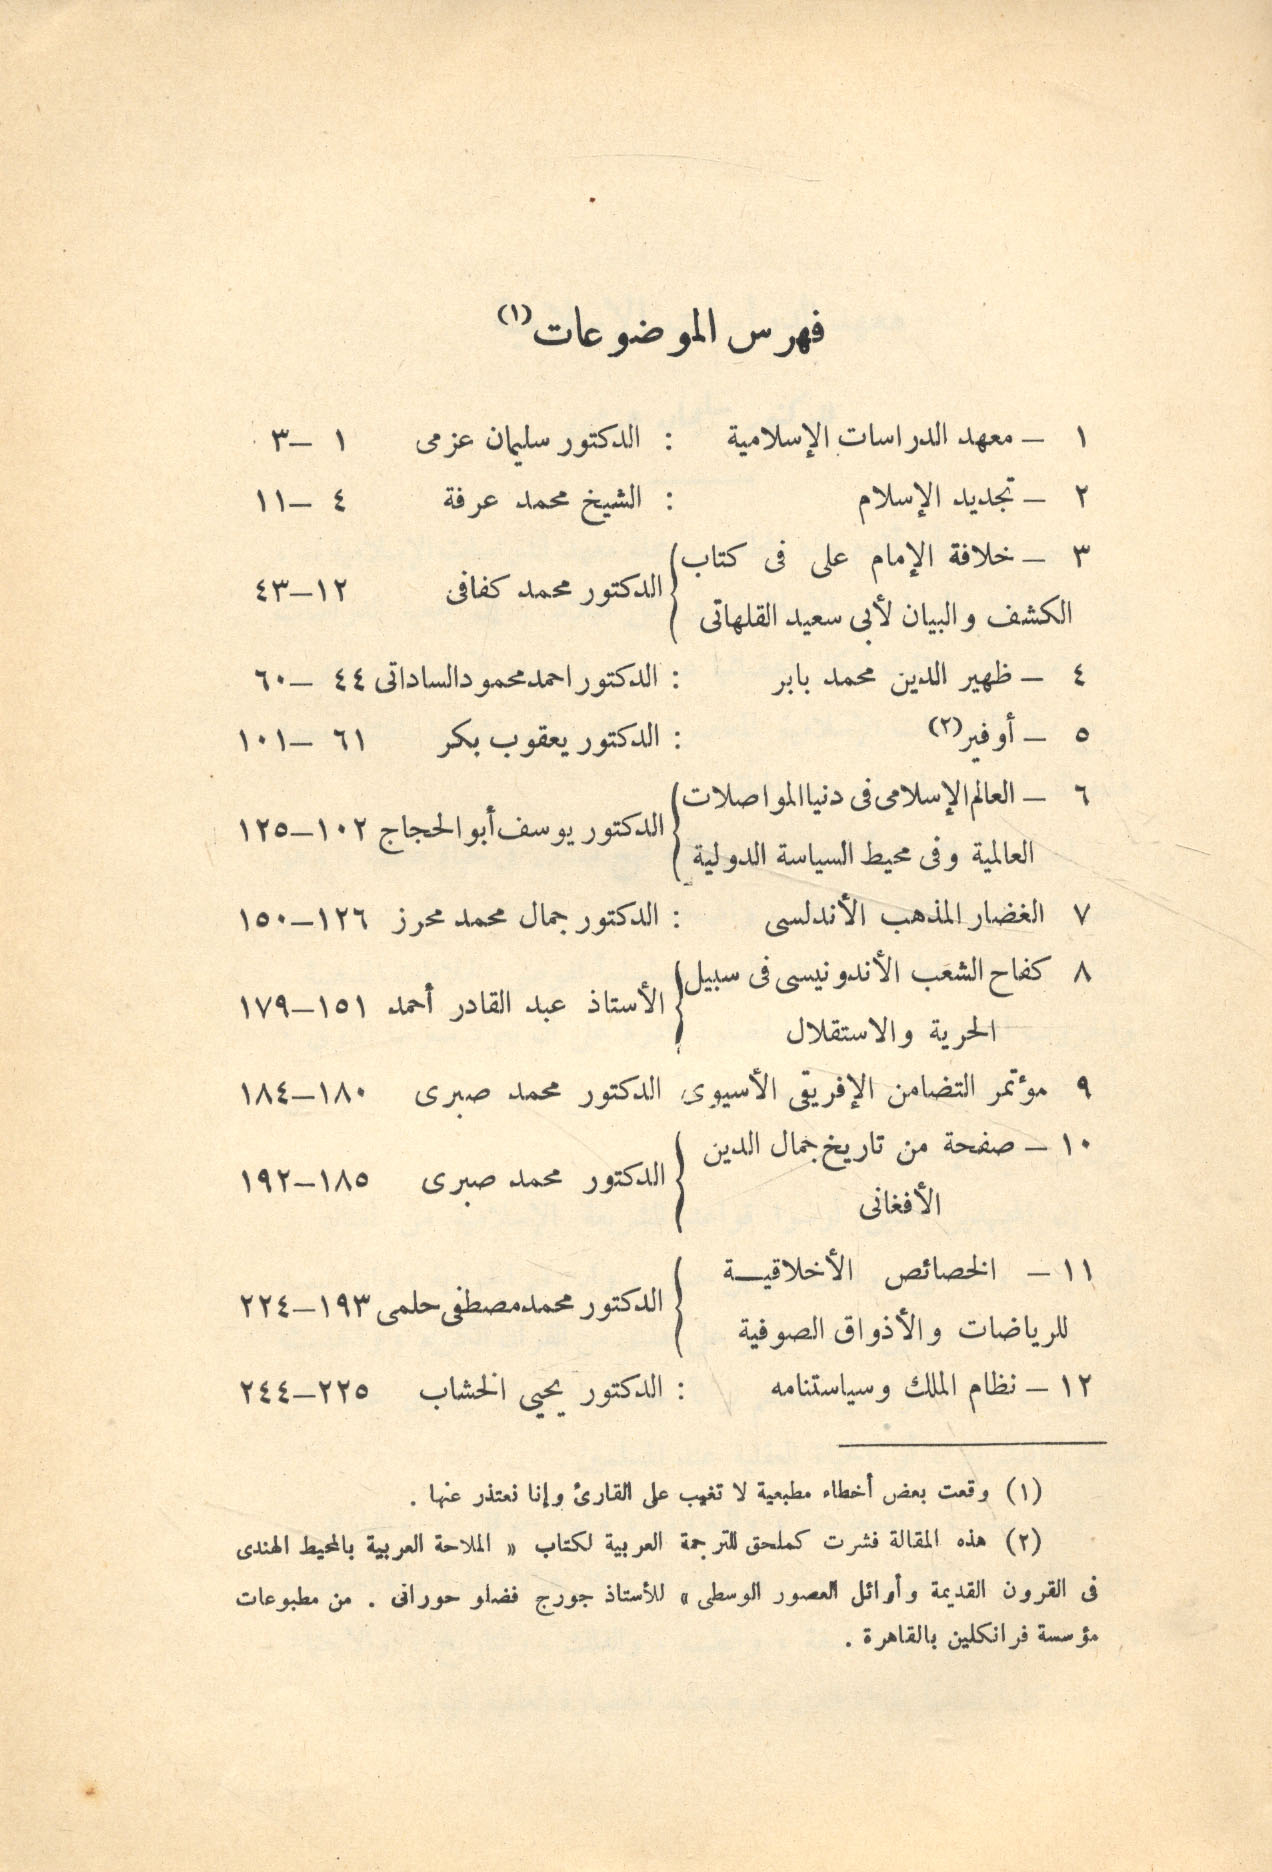 فهرس الموضوعات (١)
١ – معهد الدراسات الإسلامية : الدكتور سليمان عزمى ١ – ٣
٢ – تجديد الإسلام : الشيخ محمد عرفة ٤ – ١١
٣ – خلافة الإمام على فى كتاب
الكشف والبيان لأبى سعيد القلهاتى } الدكتور محمد كفافى ١٢–٤٣
٤ – ظهير الدين محمد بابر : الدكتور احمد محمود الساداتى ٤٤ – ٦٠
٥ – أوفير (٢) : الدكتور يعقوب بكر ٦١ – ١٠١
٦ – العالم الإسلامى فى دنيا المواصلات
العالمية وفى محيط السياسة الدولية } الدكتور يوسف أبو الحجاج ١٠٢–١٢٥
٧ الغضار المذهب الأندلسى : الدكتور جمال محمد محرز ١٢٦–١٥٠
٨ كفاح الشعب الأندونيسى فى سبيل
الحرية والاستقلال } الأستاذ عبد القادر أحمد ١٥١–١٧٩
٩ مؤتمر التضامن الإفريقى الأسيوى الدكتور محمد صبرى ١٨٠–١٨٤
١٠ – صفحة من تاريخ جمال الدين
الأفغانى } الدكتور محمد صبرى ١٨٥–١٩٢
١١ – الخصائص الأخلاقيـة
للرياضات والأذواق الصوفية } الدكتور محمد مصطفى حلمى ١٩٣–٢٢٤
١٢ – نظام الملك وسياستنامه : الدكتور يحيى الخشاب ٢٢٥–٢٤٤
(١) وقعت بعض أخطاء مطبعية لا تغيب على القارئ وإنا نعتذر عنها .
(٢) هذه المقالة نشرت كملحق للترجمة العربية لكتاب « الملاحة العربية بالمحيط الهندى
فى القرون القديمة وأوائل العصور الوسطى » للأستاذ جورج فضلو حورانى . من مطبوعات
مؤسسة فرانكلين بالقاهرة .